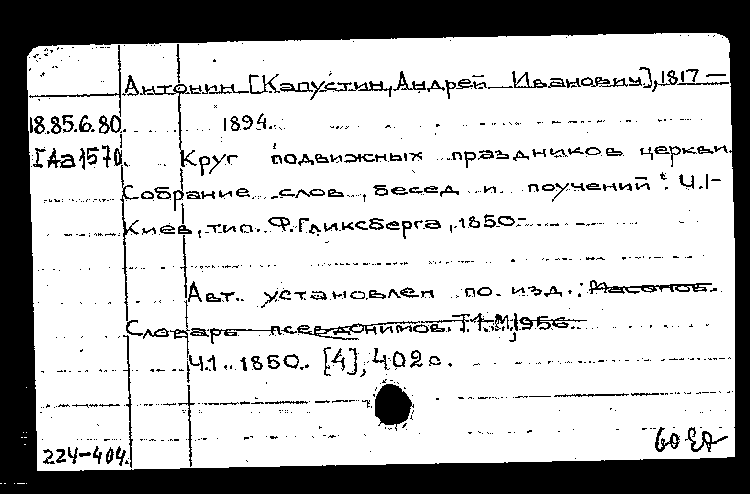 Антонин [Капустин, Андрей Иванович], 1817—
18.85.6.80. 1894.
[Аа1570 Круг подвижных праздников церкви.
Собрание слов, бесед и поучений. Ч.1-
Киев, тип. Ф. Гликсберга, 1850-
Авт. установлен по изд.: Масонов.
Словарь псевдонимов. Т.1. М, 1956.
Ч.1. 1850. [4], 402 с.
224-404.